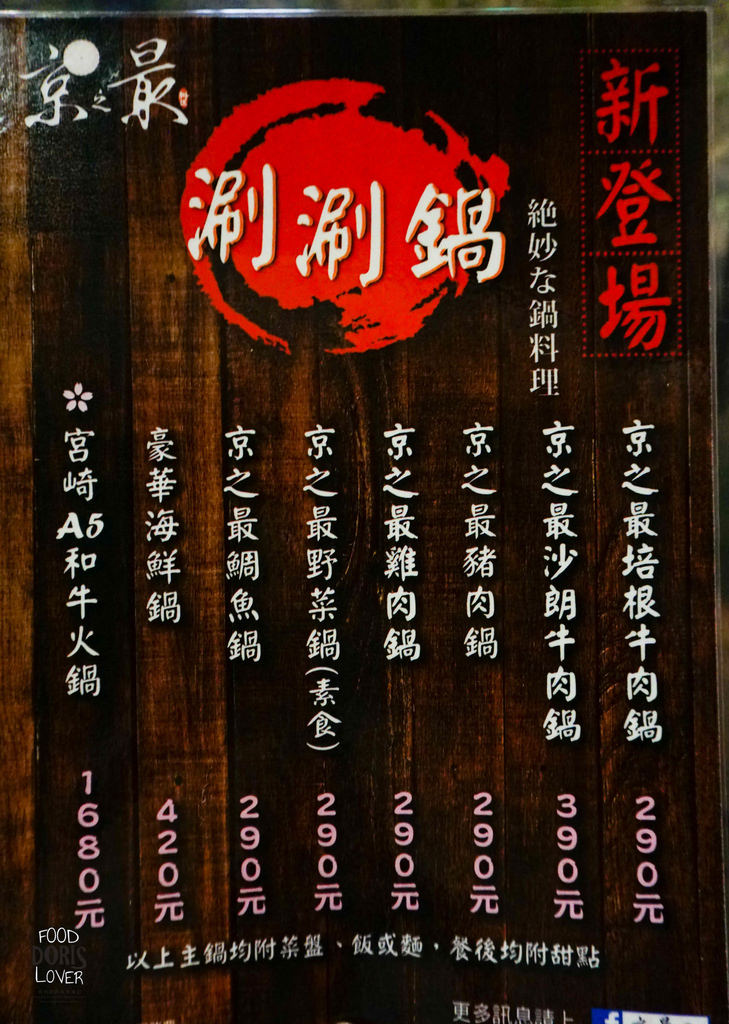 京之最
新登場
涮涮鍋
絶妙な鍋料理
京之最培根牛肉鍋 290元
京之最沙朗牛肉鍋 390元
京之最豬肉鍋 290元
京之最雞肉鍋 290元
京之最野菜鍋(素食) 290元
京之最鯛魚鍋 290元
豪華海鮮鍋 420元
宮崎A5和牛火鍋 1680元
以上主鍋均附菜盤、飯或麵，餐後均附甜點
更多訊息請上
FOOD
DORIS
LOVER